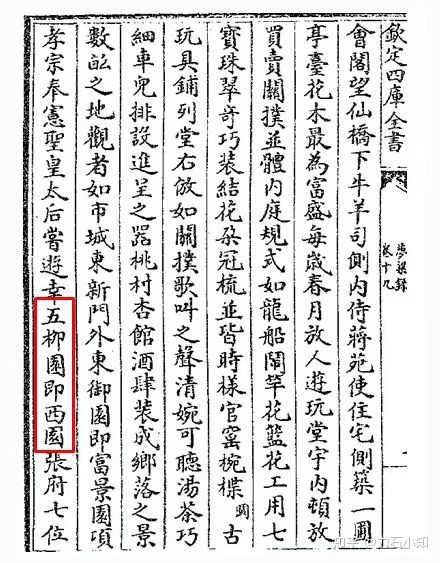 欽定四庫全書
夢粱錄
卷十九
一
會閣望仙橋下牛羊司側內侍蔣苑使住宅側築一圃
亭臺花木最為富盛每歲春月放人遊玩堂宇內頓放
買賣關撲並體內庭規式如龍船鬧竿花籃花工用七
寶珠翠奇巧裝結花朵冠梳並皆時樣官窰椀楪闕古
玩具鋪列堂右倣如關撲歌叫之聲清婉可聽湯茶巧
細車兒排設進呈之器桃村杏館酒肆裝成鄉落之景
數畝之地觀者如市城東新門外東御園即富景園頃
孝宗奉憲聖皇太后嘗遊幸五柳園即西園張府七位
知乎 @力石小知